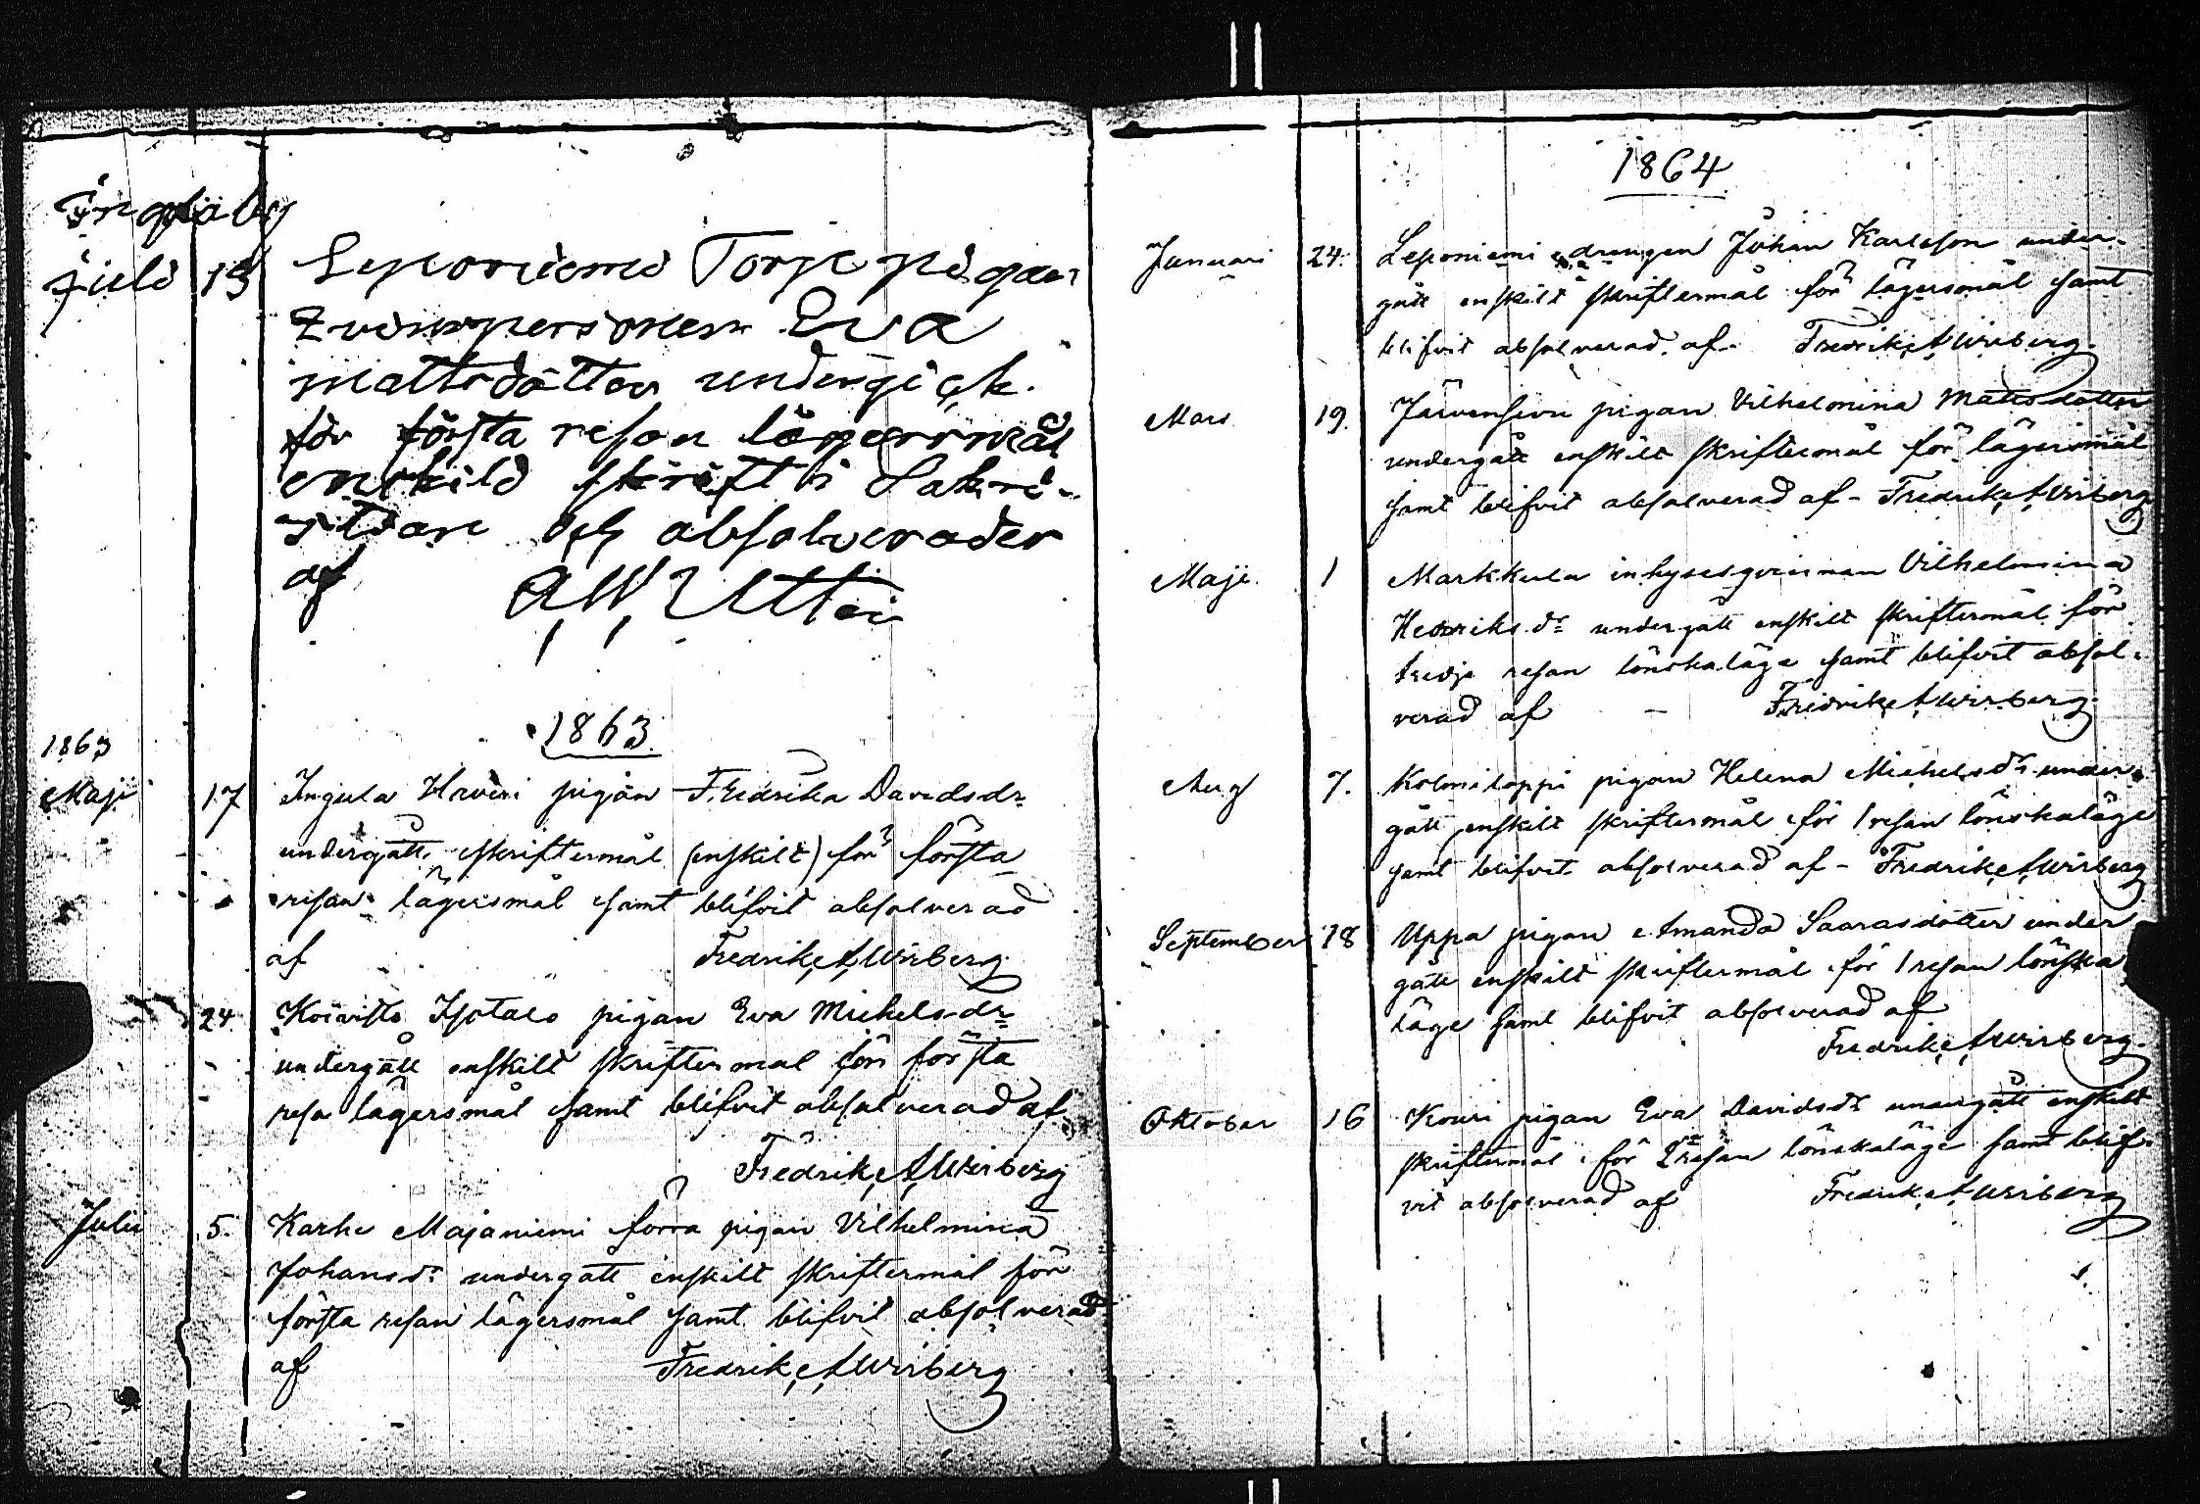 Juli 13 Leponiemi Torp pigan
Eva
mattsdotter undergick
för första resan lägersmål
enskild skrift i Sakri-
stian och absolverades
af A, W, Uttér
1863
1863
Maji 17 Ingula Haveri pigan Fredrika Davidsdr
undergått skriftermål (enskilt) för första
resan lägersmål samt blifvit absolverad
af Fredrik, A, Wirberg
24 Koivisto Isotalo pigan Eva Michelsdr
undergått enskilt skriftermål för första
resa lägersmål samt blifvit absolverad af
Fredrik, A, Wirberg
Juli 5. Karhe Majaniemi förra pigan Vilhelmina
Johansdr undergått enskilt skriftermål för
första resan lägersmål samt blifvit absolverad
af Fredrik, A, Wirberg
1864
Januari 24. Leponiemi drengen Johan Karlsson under-
gått enskilt skriftermål för lägersmål samt
blifvit absolverad af Fredrik, A, Wirberg.
Mars 19. Järvensivu pigan Vilhelmina Mattsdotter
undergått enskilt skriftermål för lägersmål
samt blifvit absolverad af - Fredrik, A, Wirberg
Maji. 1 Markkula inhysesqvinnan Vilhelmina
Henriks dr undergått enskilt skriftermål för
tredje resan lönskaläge samt blifvit absol-
verad af - Fredrik, A, Wirberg.
Aug 7. Kolmiloppi pigan Helena Michelsdr under-
gått enskilt skriftermål för 1 resan lönskaläge
samt blifvit absolverad af - Fredrik, A, Wirberg
September 18 Uppa pigan Amanda Saarasdotter under
gått enskilt skriftermål för 1 resan lönska
läge samt blifvit absolverad af
Fredrik, A, Wirberg.
Oktober 16 Kouri pigan Eva Davidsdr undergått enskilt
skriftermål för 2 resan lönskaläge samt blif-
vit absolverad af Fredrik, A, Wirberg